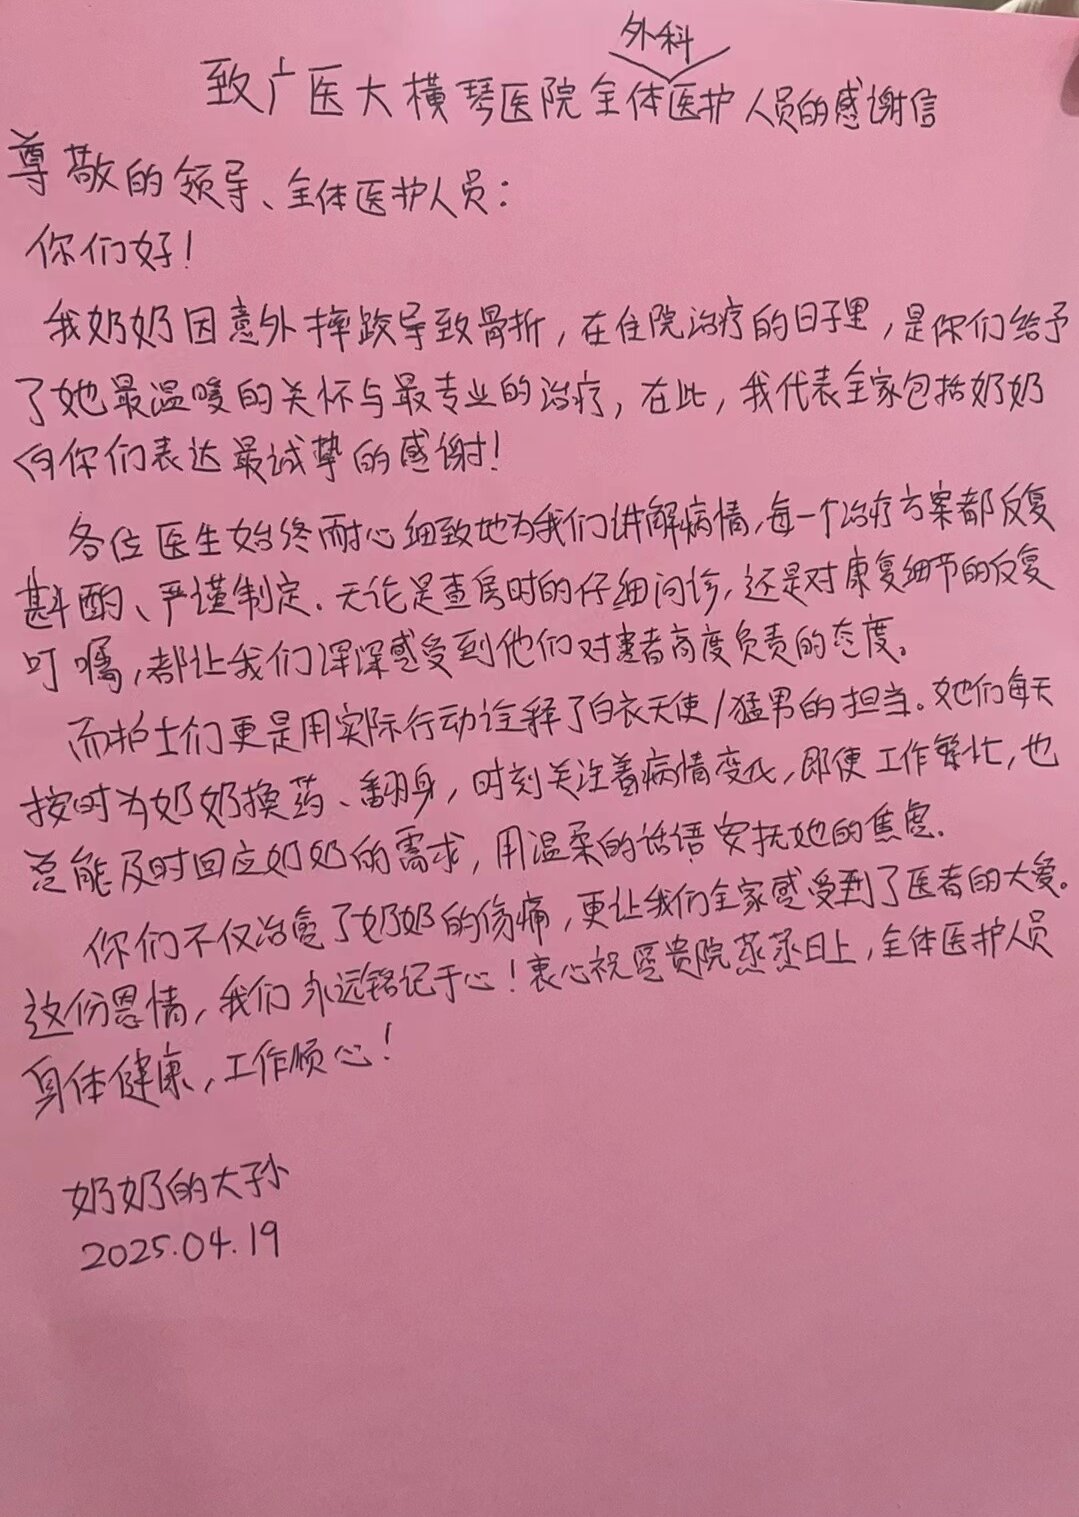 致广医大横琴医院外科全体医护人员的感谢信
尊敬的领导、全体医护人员：
你们好！
我奶奶因意外摔跤导致骨折，在住院治疗的日子里，是你们给予
了她最温暖的关怀与最专业的治疗，在此，我代表全家包括奶奶
向你们表达最诚挚的感谢！
各位医生始终耐心细致地为我们讲解病情，每一个治疗方案都反复
斟酌、严谨制定。无论是查房时的仔细问诊，还是对康复细节的反复
叮嘱，都让我们深深感受到他们对患者高度负责的态度。
而护士们更是用实际行动诠释了白衣天使/猛男的担当。她们每天
按时为奶奶换药、翻身，时刻关注着病情变化，即便工作繁忙，也
总能及时回应奶奶的需求，用温柔的话语安抚她的焦虑.
你们不仅治愈了奶奶的伤痛，更让我们全家感受到了医者的大爱。
这份恩情，我们永远铭记于心！衷心祝愿贵院蒸蒸日上，全体医护人员
身体健康，工作顺心！
奶奶的大孙
2025.04.19